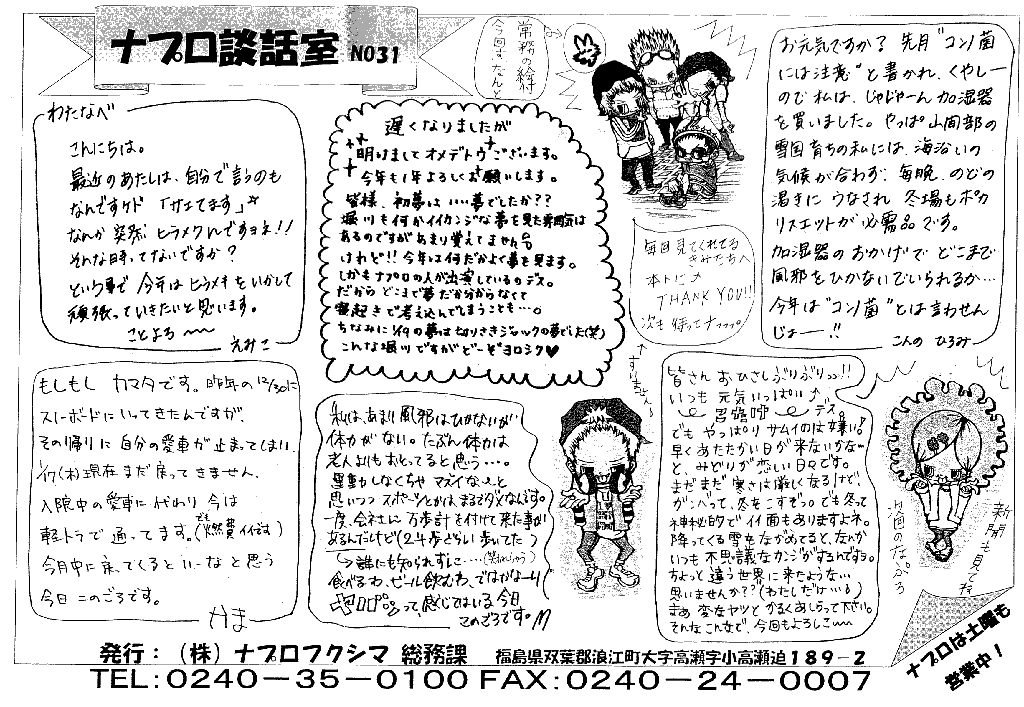 ナプロ談話室 NO31
常務の絵
今回はなんと
わたなべ
こんにちは。
最近のあたしは、自分で言うのも
なんですケド「サエてます」☆
なんか突然ヒラメクんですヨよ!!
そんな時ってないですか?
という事で今年はヒラメキをいかして
頑張っていきたいと思います。
ことよろ〜〜
えみこ
遅くなりましたが
明けましてオメデトウございます。
今年も1年よろしくお願いします。
皆様、初夢はいい夢でしたか??
堀川も何かイイカンジな夢を見た雰囲気は
あるのですがあまり覚えてません
けれど!!今年は何だかよく夢を見ます。
しかもナプロの人が出演しているのデス。
だからどこまで夢だか分からなくて
寝起きで考え込んでしまうことも…。
ちなみに1/9の夢は切りさきジャックの夢でした(笑)
こんな堀川ですがどーぞヨロシク♥
お元気ですか？先月"コン菌
には注意"と書かれ、くやしー
ので私は、じゃじゃーん加湿器
を買いました。やっぱ山間部の
雪国育ちの私には、海沿いの
気候が合わず、毎晩、のどの
渇きにうなされ冬場もポカ
リスエットが必需品です。
加湿器のおかげでどこまで
風邪をひかないでいられるか…
今年は"コン菌"とは言わせん
じょー!!
こんの ひろみ
毎回見てくれてる
きみたちへ
本トに
THANK YOU!!
次も待ってナ
もしもし カマタです。昨年の12/30に
スノーボードにいってきたんですが、
その帰りに自分の愛車が止まってしまい
1/17(木)現在まだ戻ってきません。
入院中の愛車に代わり今は
軽トラで通ってます。(でも燃費イイですね)
今月中に戻ってくるといーなと思う
今日このごろです。
かま
私は、あまり風邪はひかないが
体力がない。たぶん体力は
老人よりもおとってると思う…。
運動しなくちゃマズイなぁと
思いつつスポーツとかは、まるでダメなんです。
一度、会社に万歩計を付けて来た事が
あるんだけど(24歩ぐらい歩いてた)
→誰にも知られずに…
食べるわ、ビール飲むわ、ではがなーり
って感じてはいる今日
このごろです。
皆さんおひさしぶりぶりっっ!!
いつも元気いっぱい
呂脩呻 デス
でもやっぱりサムイのは嫌い。
早くあたたかい日が来ないかなぁ
と、みどりが恋しい日々です。
まだまだ寒さは厳しくなるけど、
がんばって冬をこすぞ。でも冬って
神秘的でイイ面もありますよネ。
降ってくる雪をながめてると、なんか
いつも不思議なカンジがするんです。
ちょっと違う世界に来たような。
思いませんか??(わたしだけ!?)
まあ変なヤツとかるくあしらって下さい。
そんなこんなで、今回もよろしこ〜
新聞も見てネ
次回のなぷろ
ナプロは土曜も
営業中!
発行:(株)ナプロフクシマ 総務課 福島県双葉郡浪江町大字高瀬字小高瀬迫189-2
TEL:0240-35-0100 FAX:0240-24-0007